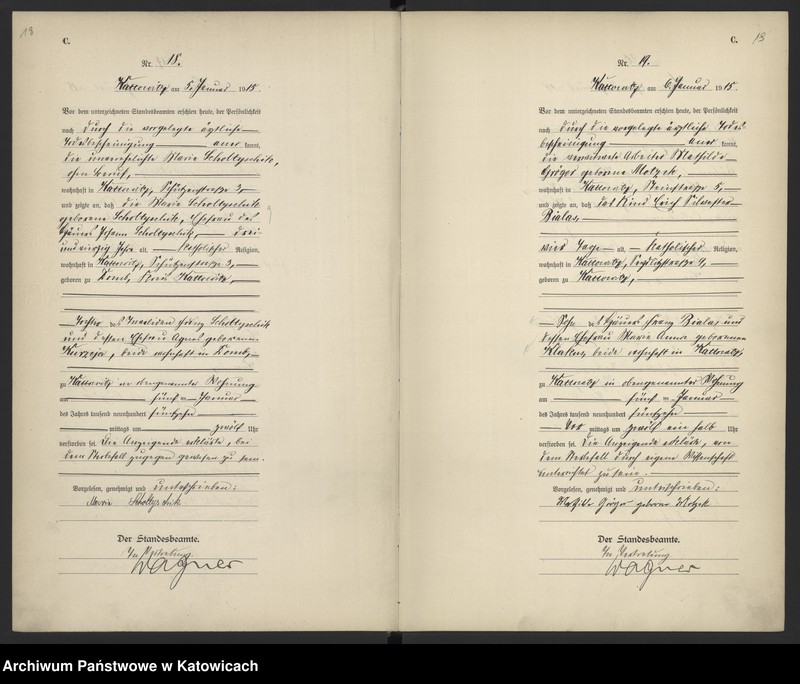 18
C.
Nr. 18.
Kattowitz am 5. Januar 1915.
Vor dem unterzeichneten Standesbeamten erschien heute, der Persönlichkeit
nach durch die vorgelegte ärztliche
Todesbescheinigung aner kannt,
die unverehelichte Marie Scholtyschik,
ohne Beruf,
wohnhaft in Kattowitz, Schützenstraße 3,
und zeigte an, daß die Marie Scholtyschik
geborene Scholtyschik, Ehefrau des
Häuers Johann Scholtyschik, drei
und vierzig Jahre alt, Katholischer Religion,
wohnhaft in Kattowitz, Schützenstraße 3,
geboren zu Domb, Kreis Kattowitz,
Tochter des Invaliden Scholtyschik
und dessen Ehefrau Agnes geborenen
Kurzeja, beide wohnhaft in Domb,
zu Kattowitz in obengenannter Wohnung
am fünf ten Januar
des Jahres tausend neunhundert fünfzehn
mittags um zwölf Uhr
verstorben sei. Die Anzeigende erklärte, bei
dem Sterbefall zugegen gewesen zu sein.
Vorgelesen, genehmigt und unterschrieben:
Marie Scholtyschik
Der Standesbeamte.
In Vertretung
Wagner
C.
19
Nr. 19.
Kattowitz am 6. Januar 1915.
Vor dem unterzeichneten Standesbeamten erschien heute, der Persönlichkeit
nach durch die vorgelegte ärztliche Todes
bescheinigung aner kannt,
die verwitwete Arbeiter Mathilde
Gregor geborene Motzek,
wohnhaft in Kattowitz, 5,
und zeigte an, daß das Kind Erich Silvester
Bialas,
vier Tage alt, Katholischer Religion,
wohnhaft in Kattowitz, Seydlitzstraße 4,
geboren zu Kattowitz,
Sohn des Häuers Franz Bialas und
dessen Ehefrau Marie Anna geborenen
beide wohnhaft in Kattowitz,
zu Kattowitz in obengenannter Wohnung
am fünf ten Januar
des Jahres tausend neunhundert fünfzehn
Vor mittags um zwölf ein halb Uhr
verstorben sei. Die Anzeigende erklärte, von
dem Sterbefall durch eigene Wissenschaft
unterrichtet zu sein.
Vorgelesen, genehmigt und unterschrieben:
Mathilde Gregor geborene Motzek
Der Standesbeamte.
In Vertretung
Wagner
Archiwum Państwowe w Katowicach